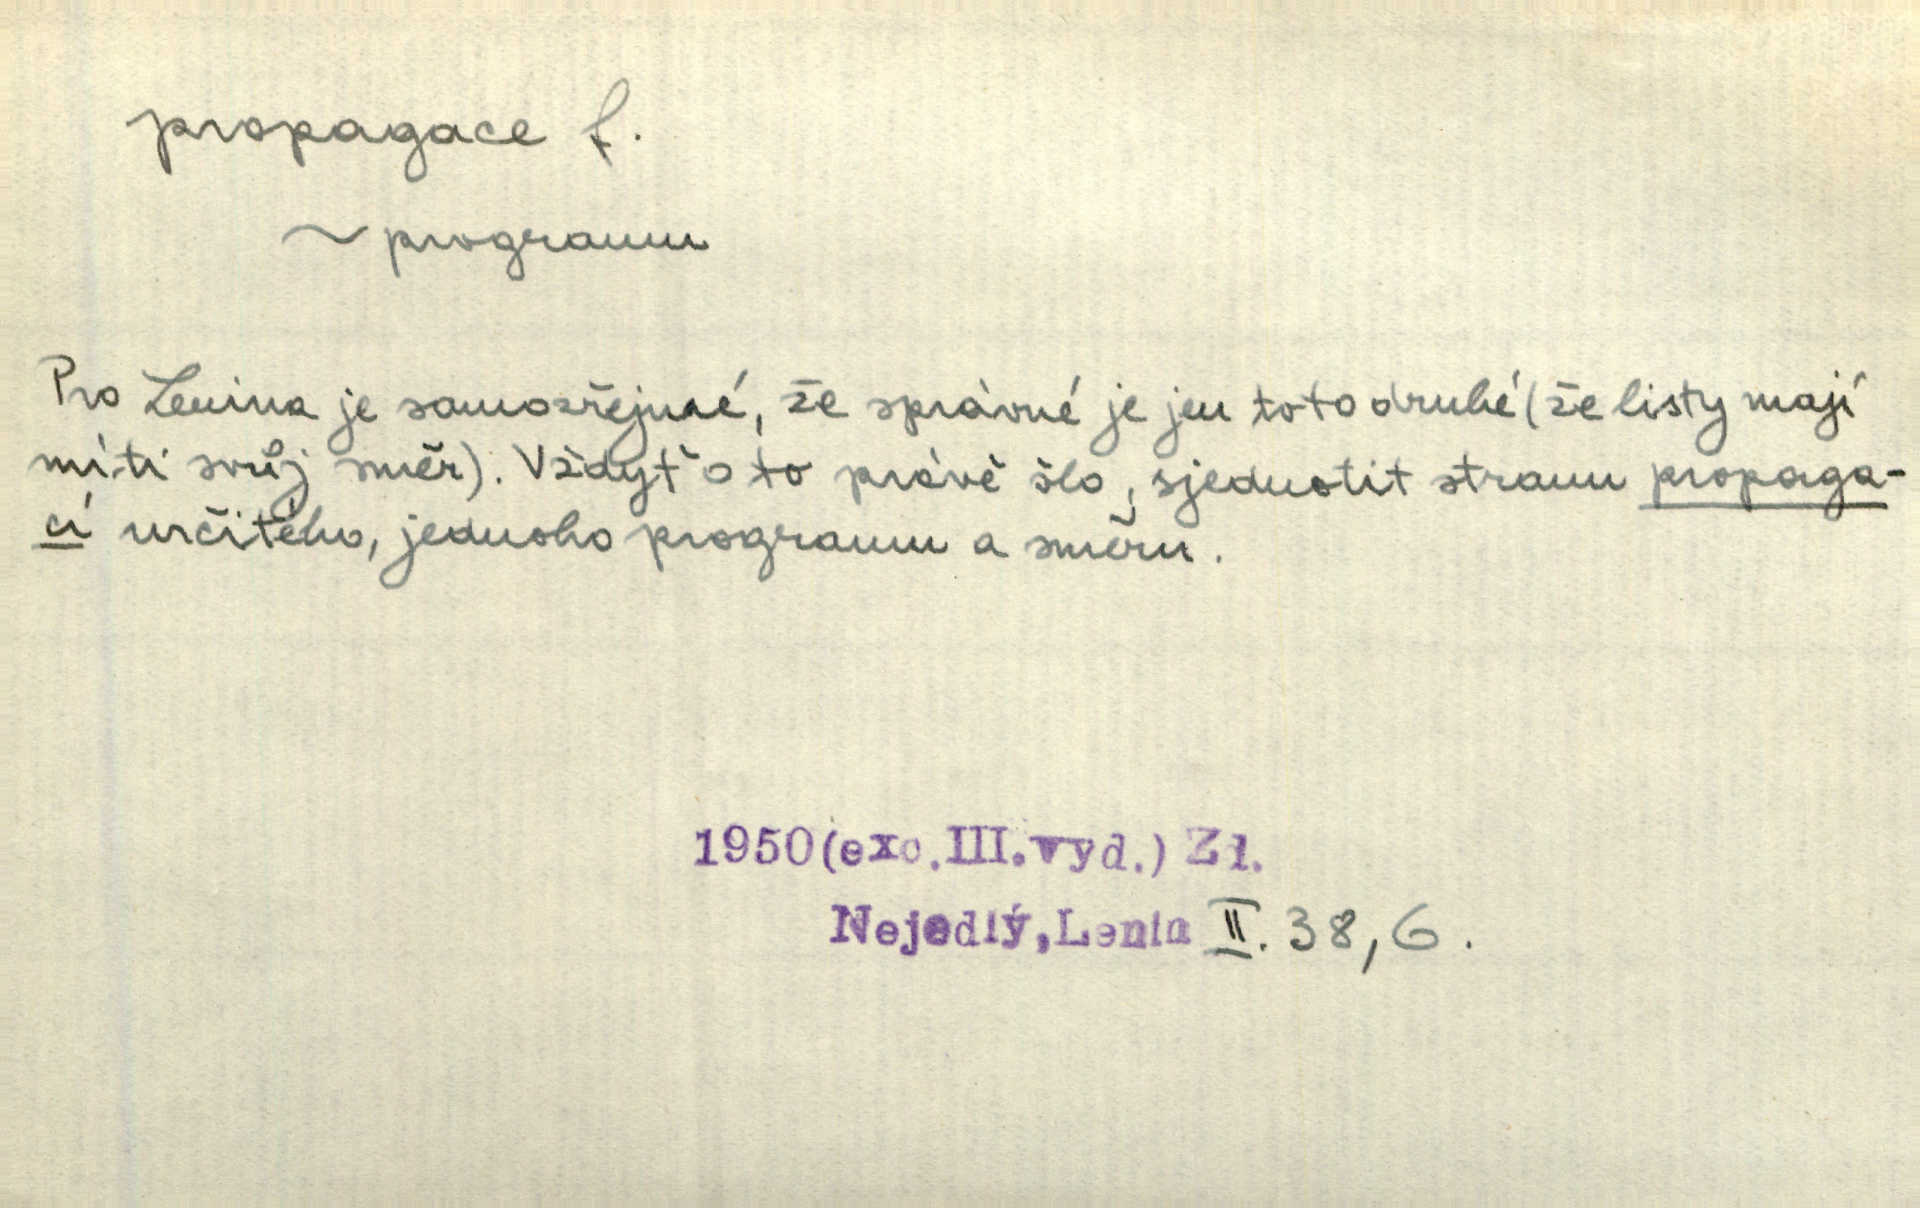 propagace f.
~ programu
Pro Lenina je samozřejmé, že správné je jen toto druhé (že listy mají
míti svůj směr). Vždyť o to právě šlo, sjednotit stranu propaga-
cí určitého, jednoho programu a směru.
1950 (exc. III. vyd.) Zd.
Nejedlý, Lenin II. 38, 6.